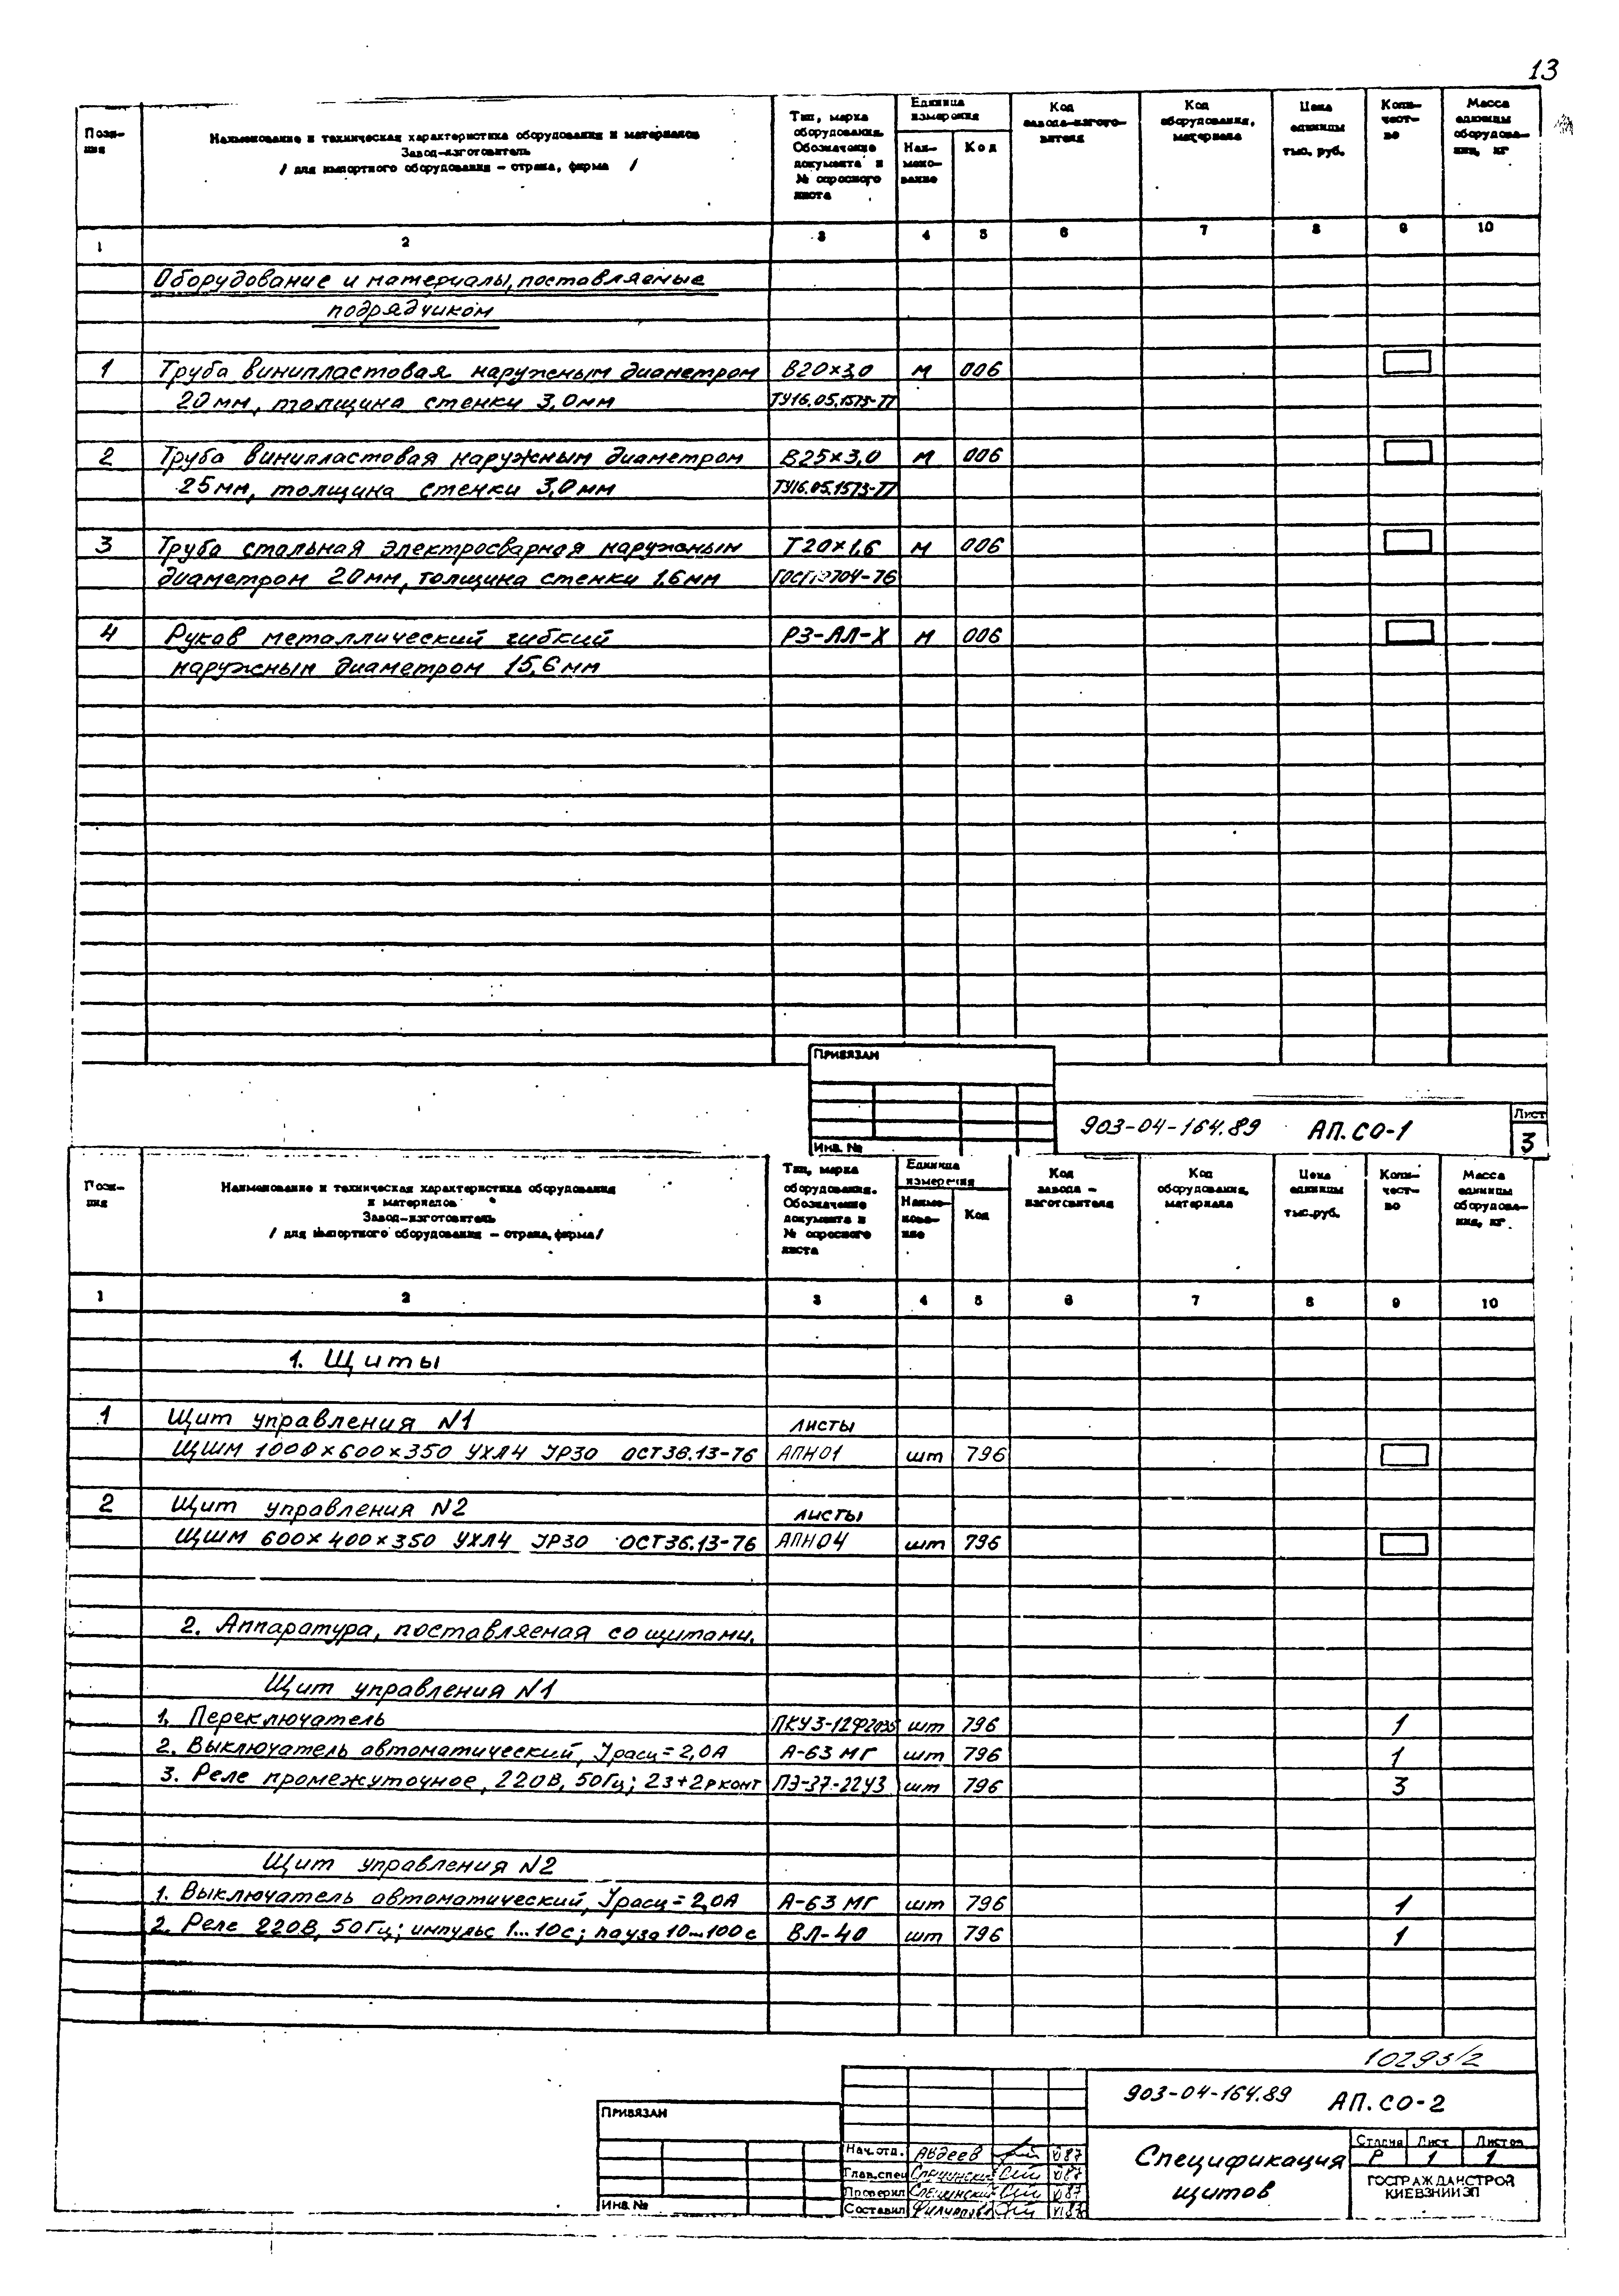 13
Пози-
ция
Наименование и техническая характеристика оборудования и материалов
Завод-изготовитель
/ для импортного оборудования – страна, фирма /
Тип, марка
оборудования.
Обозначение
документа и
№ опросного
листа
Единица
измерения
Наи-
мено-
вание
Код
Код
завода-изгото-
вителя
Код
оборудования,
материала
Цена
единицы
тыс. руб.
Коли-
чест-
во
Масса
единицы
оборудова-
ния, кг
1 2 3 4 5 6 7 8 9 10
Оборудование и материалы, поставляемые
подрядчиком
1 Труба винипластовая наружным диаметром В20×3,0 м 006
20мм, толщина стенки 3,0мм ТУ16.05.1573-77
2 Труба винипластовая наружным диаметром В25×3,0 м 006
25мм, толщина стенки 3,0мм ТУ16.05.1573-77
3 Труба стальная электросварная наружным Т20×1,6 м 006
диаметром 20мм, толщина стенки 1,6мм ГОСТ10704-76
4 Рукав металлический гибкий РЗ-АЛ-Х м 006
наружным диаметром 15,6мм
Привязан
Инв. №
903-04-164.89 АП.СО-1
Лист
3
Пози-
ция
Наименование и техническая характеристика оборудования
и материалов
Завод-изготовитель
/ для импортного оборудования – страна, фирма/
Тип, марка
оборудования.
Обозначение
документа и
№ опросного
листа
Единица
измерения
Наиме-
нова-
ние
Код
Код
завода –
изготовителя
Код
оборудования,
материала
Цена
единицы
тыс.руб.
Коли-
чест-
во
Масса
единицы
оборудова-
ния, кг
1 2 3 4 5 6 7 8 9 10
1. Щиты
1 Щит управления N1 листы
ЩШМ 1000×600×350 УХЛ4 УР30 ОСТ36.13-76 АПН01 шт 796
2 Щит управления N2 листы
ЩШМ 600×400×350 УХЛ4 УР30 ОСТ36.13-76 АПН04 шт 796
2. Аппаратура, поставляемая со щитами.
Щит управления N1
1. Переключатель ПКУ3-12Ф2035 шт 796 1
2. Выключатель автоматический, Iрасц=2,0А А-63 МГ шт 796 1
3. Реле промежуточное, 220В, 50Гц; 2з+2р конт ПЭ-37-22У3 шт 796 3
Щит управления N2
1. Выключатель автоматический, Iрасц=2,0А А-63 МГ шт 796 1
2. Реле 220В, 50Гц; импульс 1...10с; пауза 10...100с ВЛ-40 шт 796 1
10293/2
903-04-164.89 АП.СО-2
Привязан
Инв. №
Нач.отд. Авдеев
Глав.спец
Проверил
Составил
Спецификация
щитов
Стадия Лист Листов
Р 1 1
ГОСГРАЖДАНСТРОЙ
КИЕВЗНИИЭП